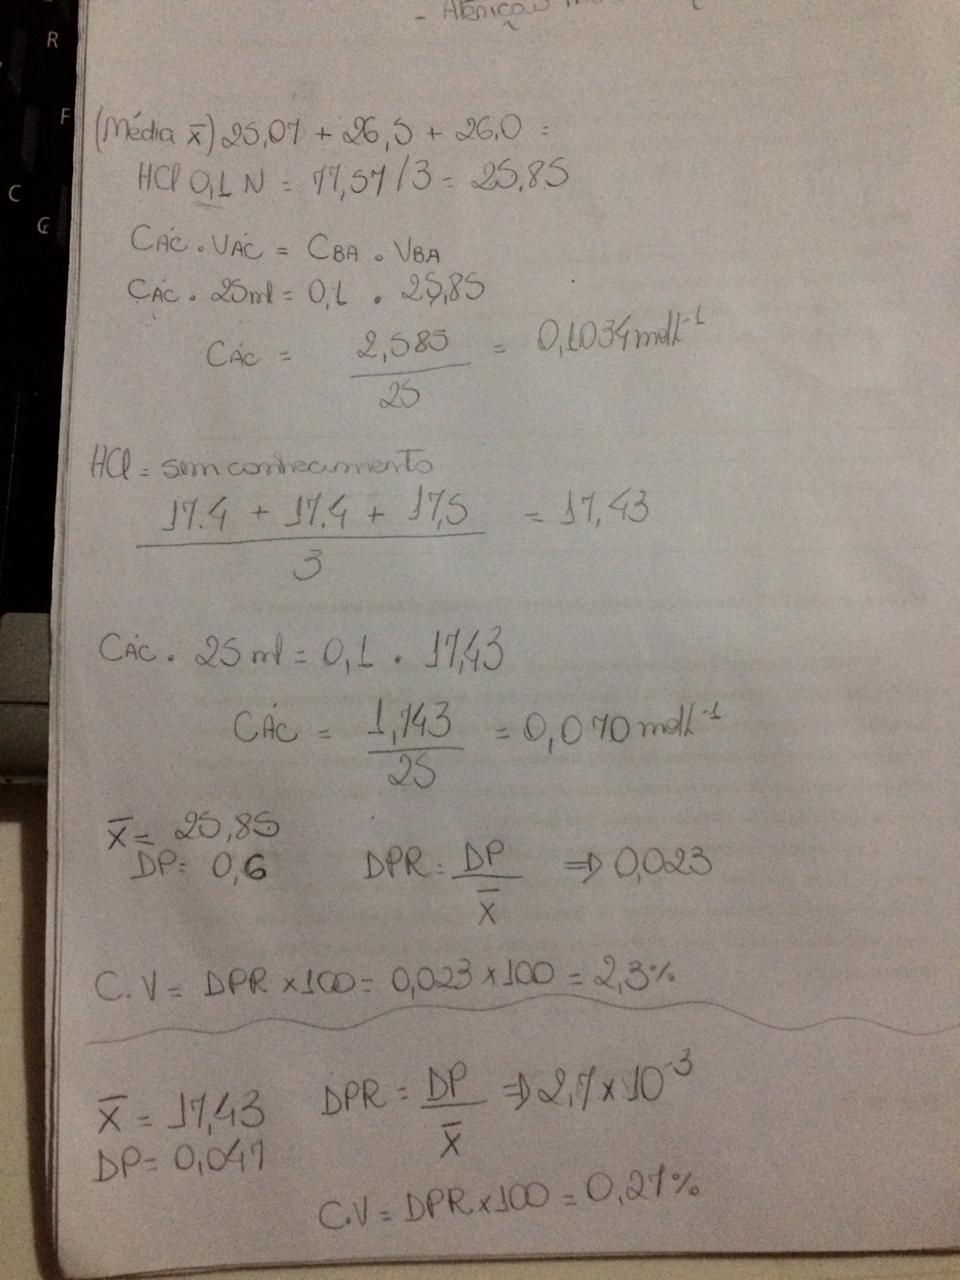 R
F
C
G
(Média x̄) 25,07 + 26,5 + 26,0 =
HCl 0,1 N = 77,57/3 = 25,85
CÁC . VÁC = CBA . VBA
CÁC . 25ml = 0,1 . 25,85
CÁC = 2,585 / 25 = 0,1034 mol L⁻¹
HCl = sem conhecimento
17.4 + 17.4 + 17,5 / 3 = 17,43
CÁC . 25 ml = 0,1 . 17,43
CÁC = 1,743 / 25 = 0,070 mol L⁻¹
x̄ = 25,85
DP = 0,6 DPR = DP / x̄ ⇒ 0,023
C.V = DPR x 100 = 0,023 x 100 = 2,3%
x̄ = 17,43 DPR = DP / x̄ ⇒ 2,7 x 10⁻³
DP = 0,047
C.V = DPR x 100 = 0,27%